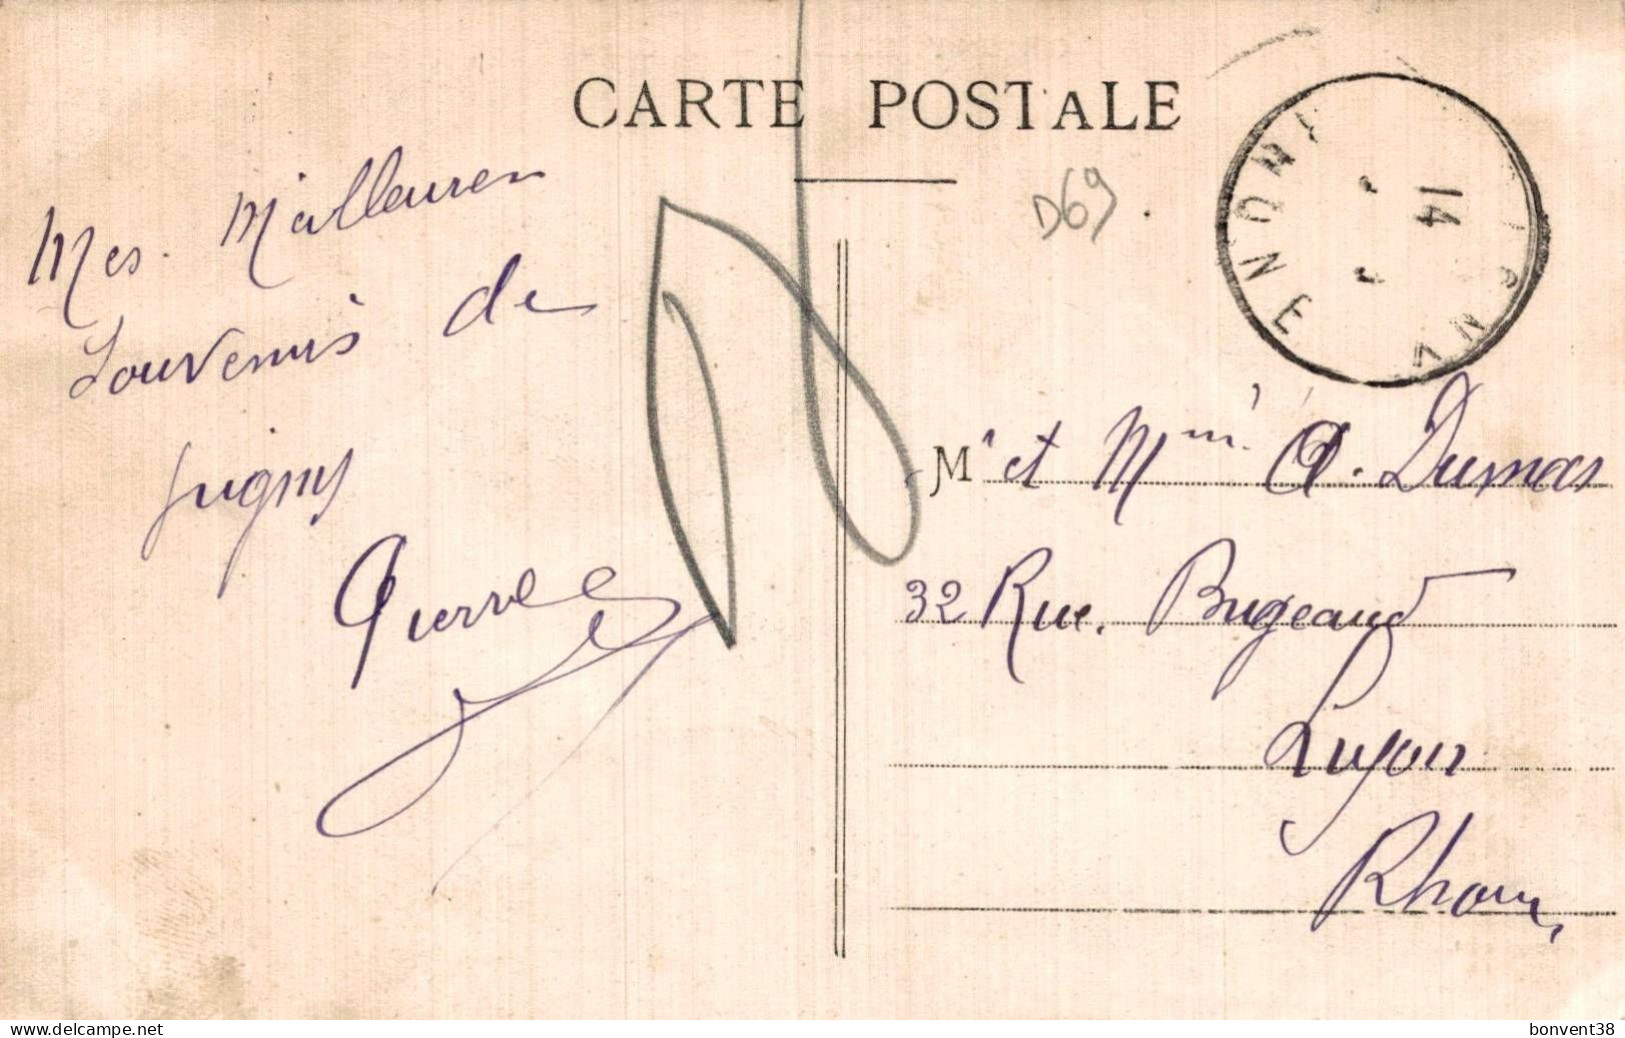 CARTE POSTALE
D69.
14
Mes Meilleures
Souvenirs de
Grigny
Pierre
Mr et Mme A. Dumas
32 Rue. Bugeaud
Lyon
Rhone
www.delcampe.net
bonvent38